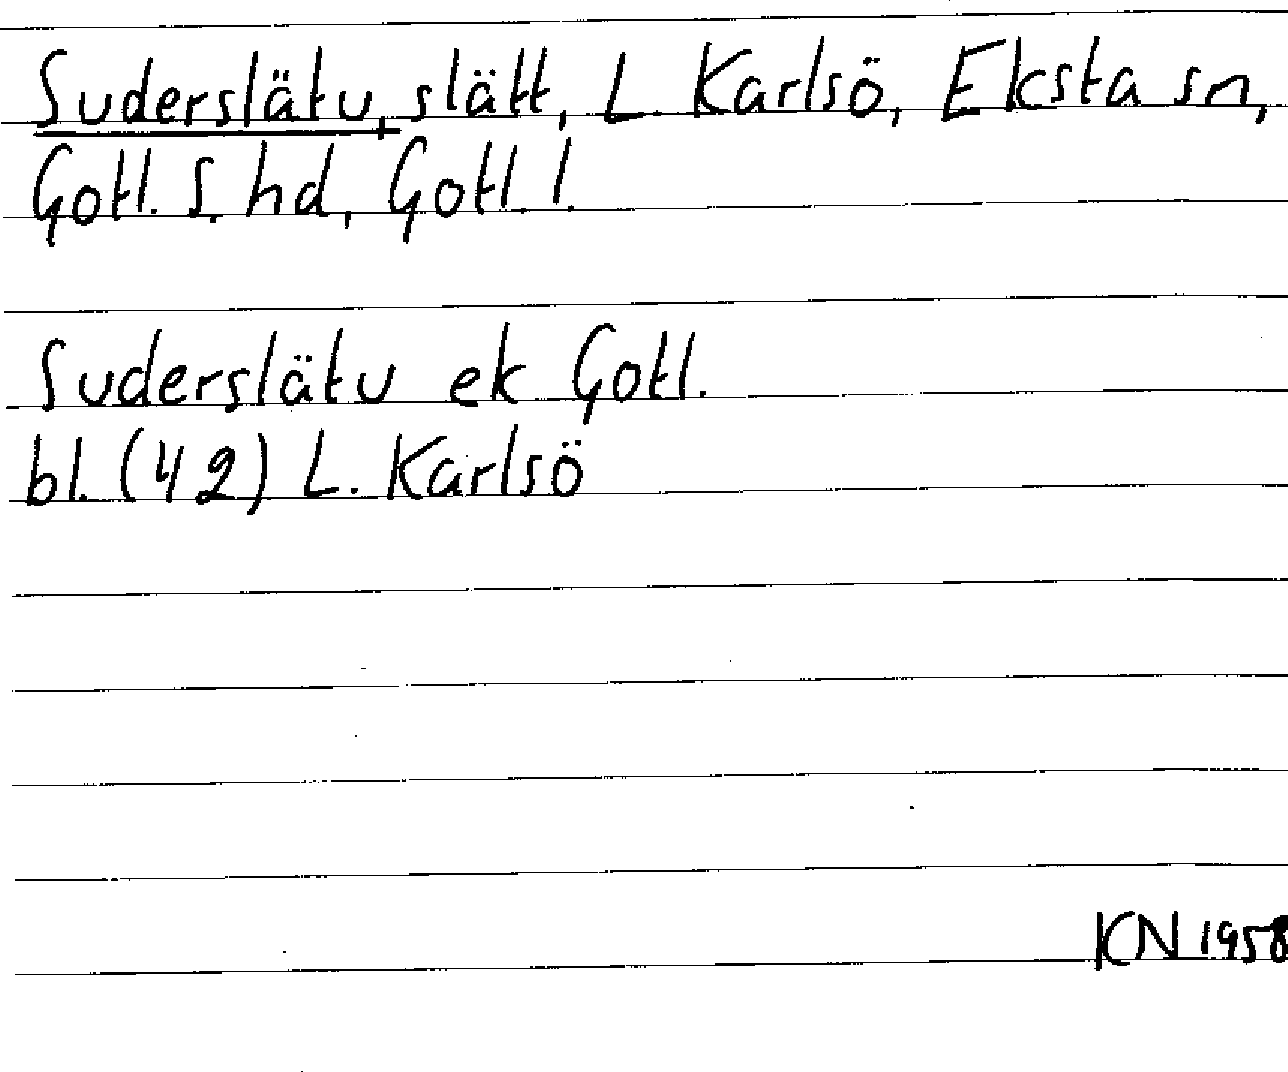 Suderslätu, slätt, L. Karlsö, Eksta sn,
Gotl. S. hd, Gotl. l.
Suderslätu ek Gotl.
bl. (42) L. Karlsö
KN 1958